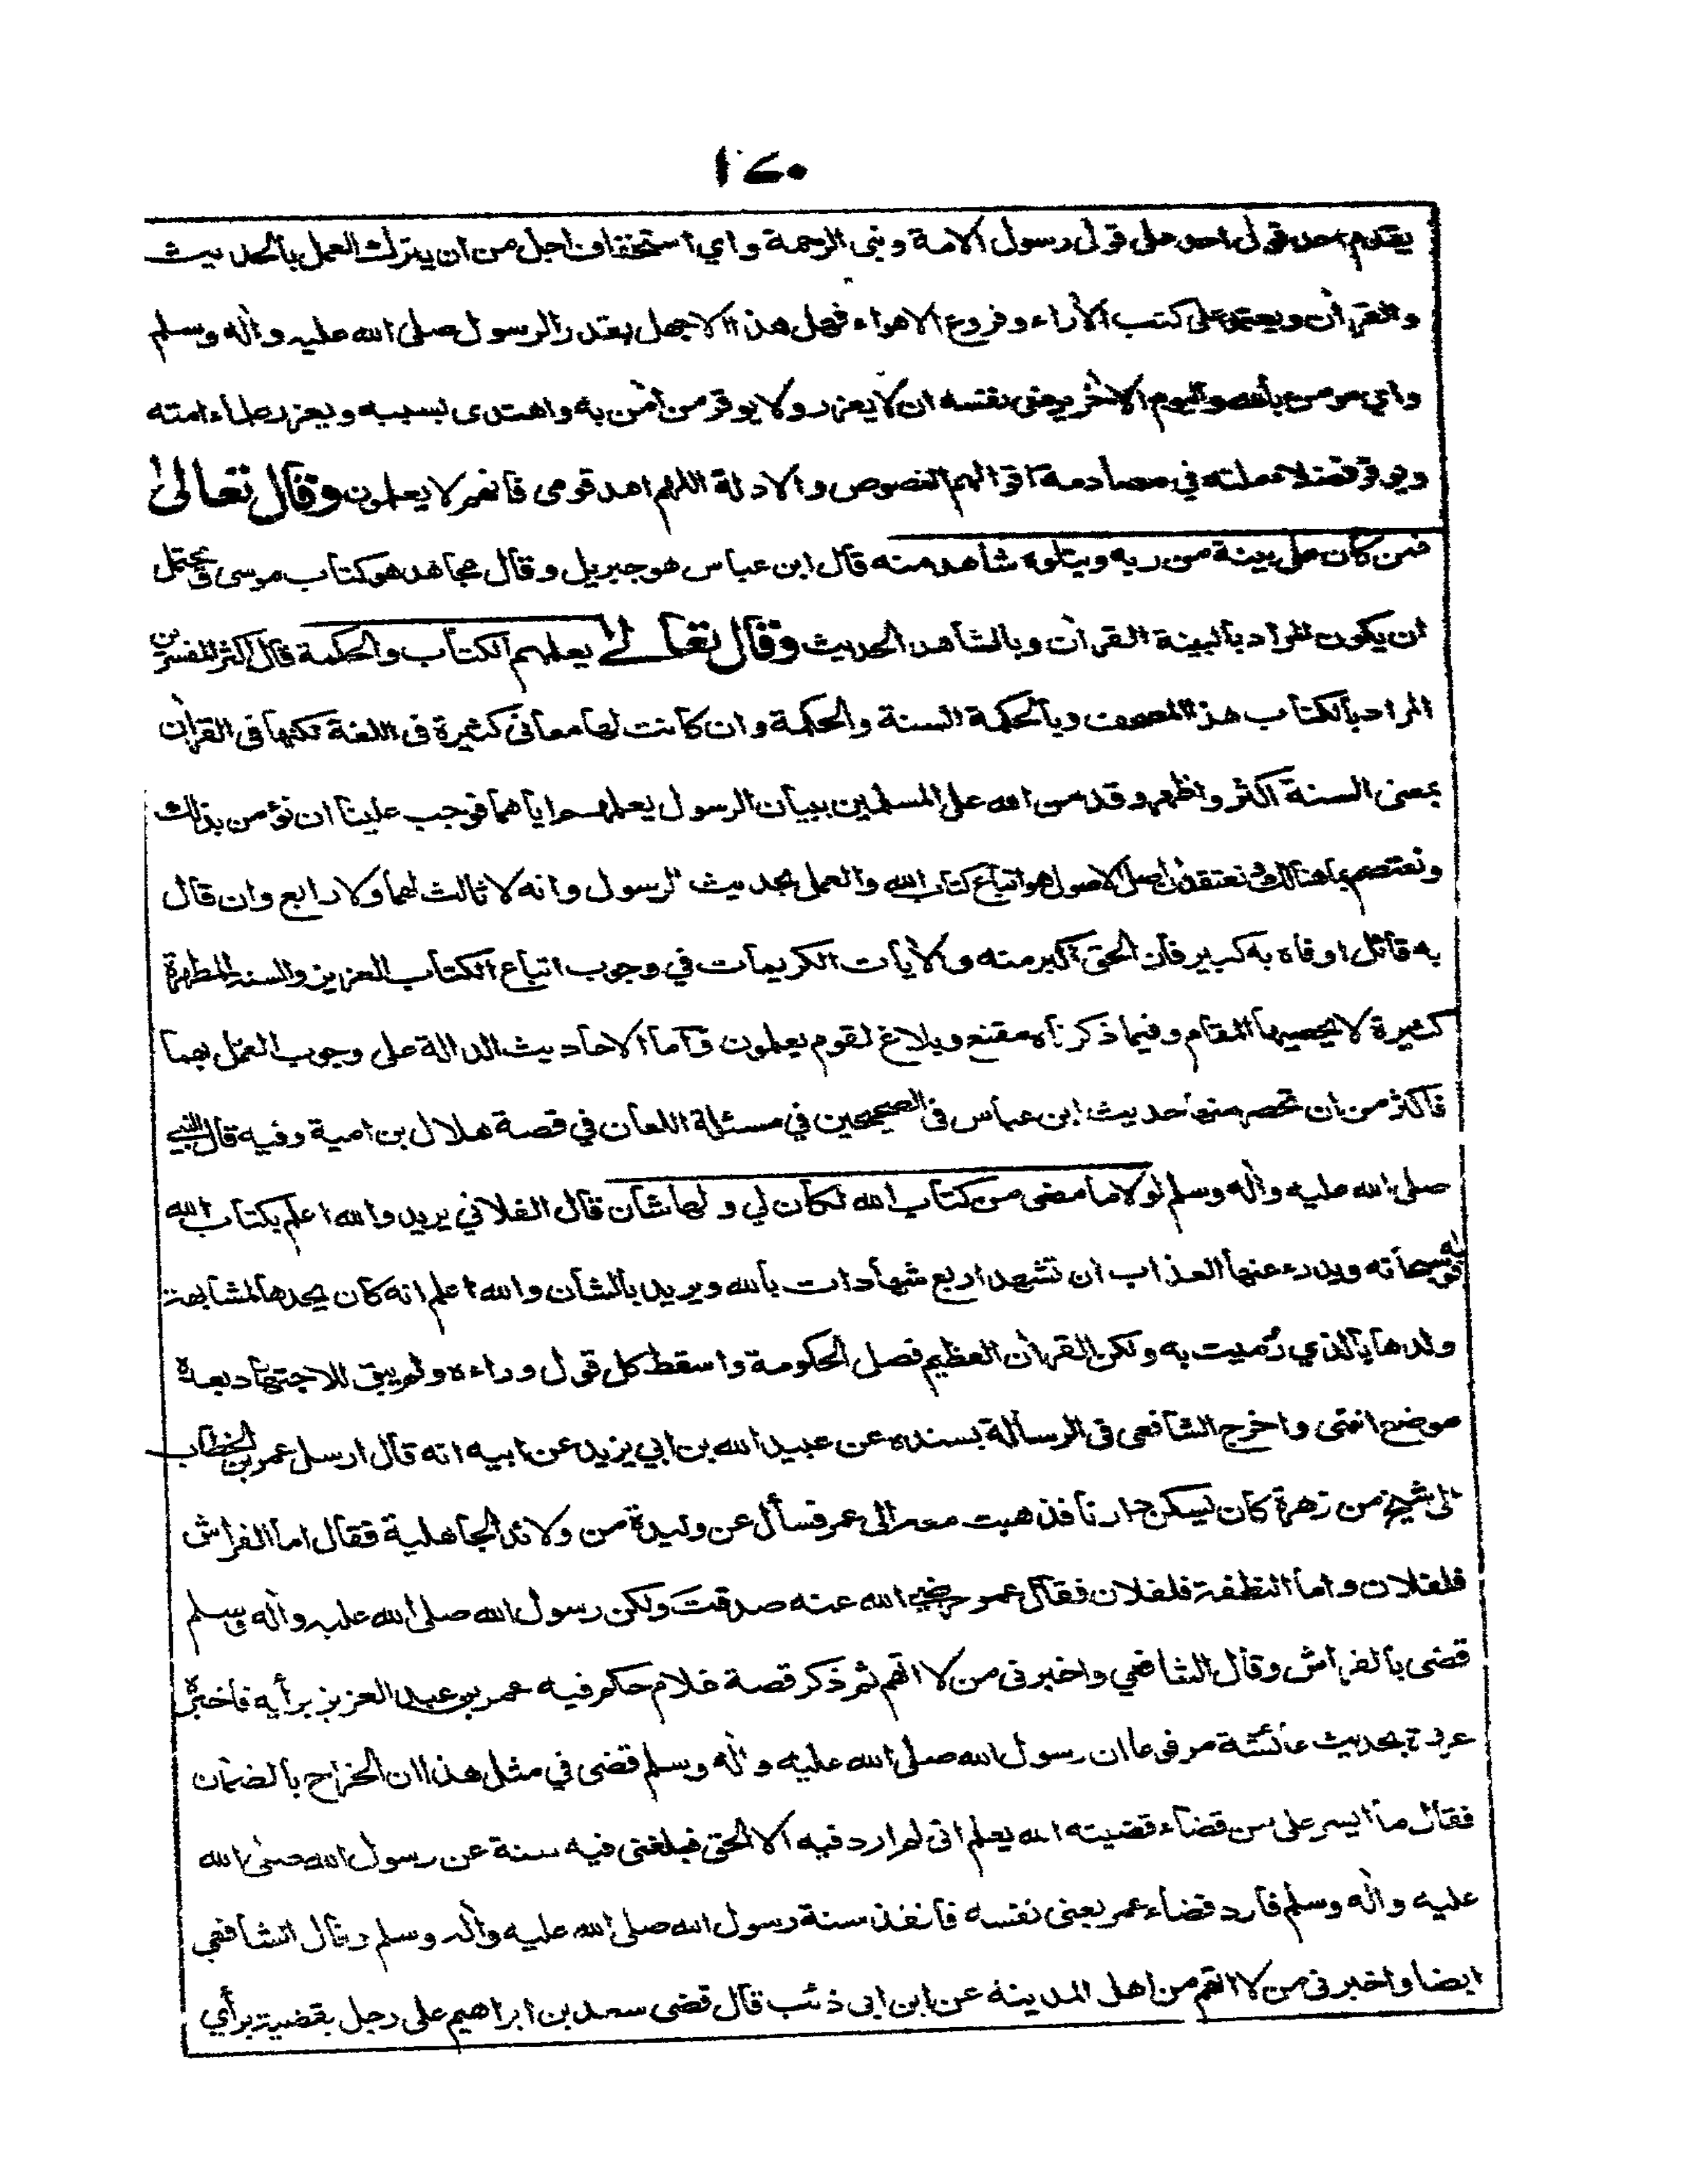 ١٤٠
يقدم احد قول احد على قول رسول الامة ونبى الرحمة واي استخفاف اجل من ان يترك العمل بالحديث
والقرآن ويعتمد على كتب الآراء وفروع الاهواء فهل هذا الا جهل بقدر الرسول صلى الله عليه وآله وسلم
واي مومن بالله واليوم الآخر يرضى بنفسه ان لا يعزر ولا يوقر من آمن به واهتدى بسببه ويعزر علماء امته
ويوقر فضلاء ملته في مصادمة اقوالهم النصوص والادلة اللهم اهد قومى فانهم لا يعلمون وقال تعالىٰ
فمن كان على بينة من ربه ويتلوه شاهد منه قال ابن عباس هو جبريل وقال مجاهد هو كتاب موسى ويحتمل
ان يكون المراد بالبينة القرآن وبالشاهد الحديث وقال تعالے يعلمهم الكتاب والحكمة قال اكثر المفسرين
المراد بالكتاب هذا المصحف وبالحكمة السنة والحكمة وان كانت لها معانى كثيرة فى اللغة لكنها فى القرآن
بمعنى السنة اكثر واظهر وقد من الله على المسلمين ببيان الرسول يعلمهم اياهما فوجب علينا ان نؤمن بذلك
ونعتصم بما هنالك ونعتقد ان اصل الاصول هو اتباع كتاب الله والعمل بحديث الرسول وانه لا ثالث لهما ولا رابع وان قال
به قائل او فاه به كبير فان الحق اكبر منه والآيات الكريمات في وجوب اتباع الكتاب العزيز والسنة المطهرة
كثيرة لا يحصيها المقام وفيما ذكرناه مقنع وبلاغ لقوم يعلمون وآما الاحاديث الدالة على وجوب العمل بهما
فاكثر من ان تحصر منها حديث ابن عباس فى الصحيحين في مسئلة اللعان في قصة هلال بن امية وفيه قال النبي
صلى الله عليه وآله وسلم لولا ما مضى من كتاب الله لكان لي ولها شان قال الفلاني يريد والله اعلم بكتاب الله
قوله سبحانه ويدرء عنها العذاب ان تشهد اربع شهادات بالله ويريد بالشان والله اعلم انه كان يحدها لمشابهة
ولدها بالذي رُميت به ولكن القرآن العظيم فصل الحكومة واسقط كل قول وراءه ولم يبق للاجتهاد بعده
موضع انتهى واخرج الشافعى فى الرسالة بسنده عن عبيد الله بن ابي يزيد عن ابيه انه قال ارسل عمر بن الخطاب
الى شيخ من زهرة كان يسكن دارنا فذهبت معه الى عمر فسأل عن وليدة من ولائد الجاهلية فقال اما الفراش
فلفلان واما النطفة فلفلان فقال عمر رضي الله عنه صدقت ولكن رسول الله صلى الله عليه وآله وسلم
قضى بالفراش وقال الشافعي واخبرنى من لا اتهم ثم ذكر قصة غلام حكم فيه عمر بن عبد العزيز برأيه فاخبره
عروة بحديث عائشة مرفوعا ان رسول الله صلى الله عليه وآله وسلم قضى في مثل هذا ان الخراج بالضمان
فقال ما ايسر على من قضاء قضيته الله يعلم انى لم ارد فيه الا الحق فبلغنى فيه سنة عن رسول الله صلى الله
عليه وآله وسلم فارد قضاء عمر يعنى نفسه فانفذ سنة رسول الله صلى الله عليه وآله وسلم وقال الشافعي
ايضا واخبرنى من لا اتهم من اهل المدينة عن ابن ابى ذئب قال قضى سعد بن ابراهيم على رجل بقضية برأي